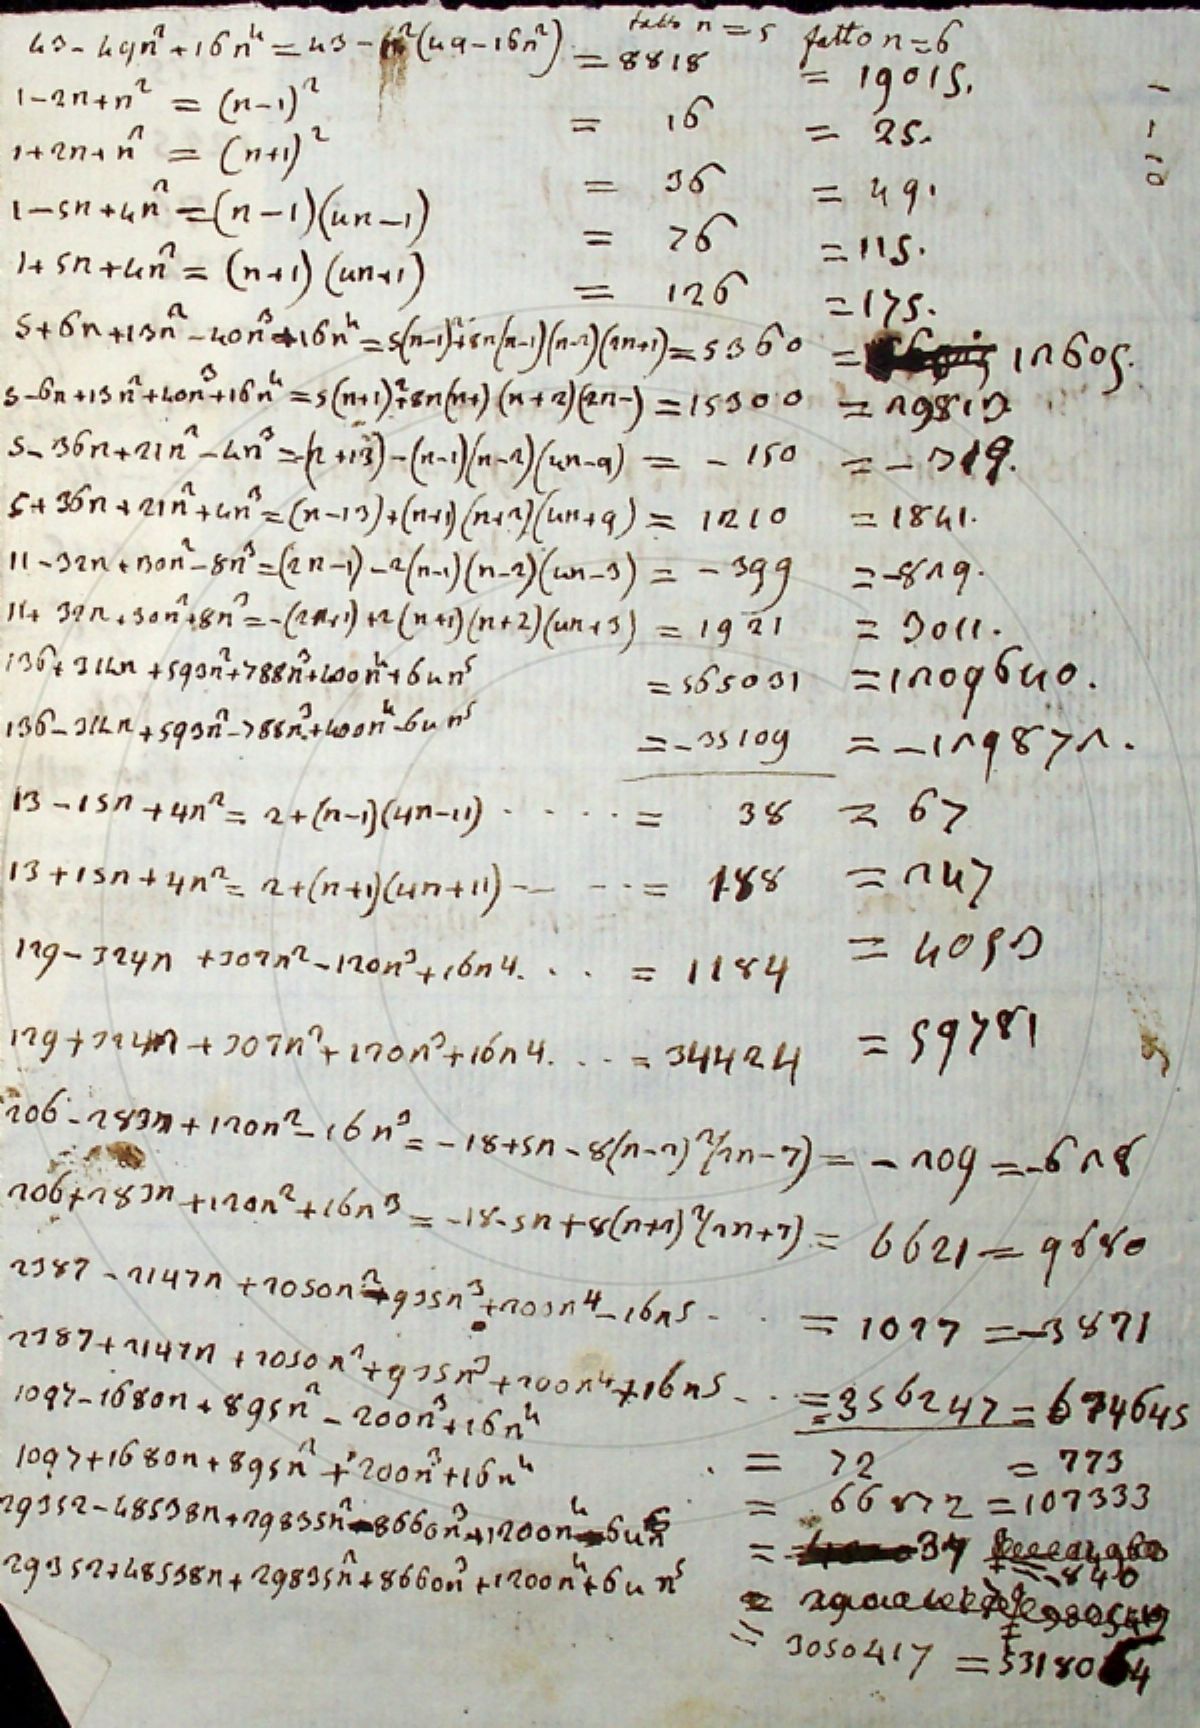 fatto n=5 fatto n=6
43-49n²+16n⁴=43-n²(49-16n²) =8818 =19015.
1-2n+n² = (n-1)² = 16 = 25.
1+2n+n² = (n+1)² = 36 = 49.
1-5n+4n²=(n-1)(4n-1) = 76 =115.
1+5n+4n²=(n+1)(4n+1) = 126 =175.
5+6n+13n²-40n³+16n⁴=5(n-1)²+8n(n-1)(n-2)(2n+1)=5360 = 12605.
5-6n+13n²+40n³+16n⁴=5(n+1)²+8n(n+1)(n+2)(2n-1)=15300 =29813
5-36n+21n²-4n³=(n+13)-(n-1)(n-2)(4n-9) = -150 =-319.
5+36n+21n²+4n³=(n-13)+(n+1)(n+2)(4n+9) = 1210 =1841.
11-32n+30n²-8n³=(2n-1)-2(n-1)(n-2)(4n-3) = -399 =-829.
11+32n+30n²+8n³=-(2n+1)+2(n+1)(n+2)(4n+3) = 1921 = 3011.
136+314n+593n²+788n³+400n⁴+64n⁵ =565031 =1209640.
136-314n+593n²-788n³+400n⁴-64n⁵ =-35109 =-129872.
13-15n+4n²= 2+(n-1)(4n-11) . . . . = 38 = 67
13+15n+4n²= 2+(n+1)(4n+11) - - . . = 188 = 247
129-324n+307n²-120n³+16n4. . . = 1184 = 4053
129+324n+307n²+120n³+16n4. . . = 34424 = 59781
206-283n+120n²-16n³=-18+5n-8(n-2)²(2n-7)=-209=-628
206+283n+120n²+16n³=-18-5n+8(n+2)²(2n+7)= 6621=9680
2387-2147n+2050n²-935n³+203n4-16n5 . . = 1027 =-3871
2387+2147n+2050n²+935n³+200n4+16n5 . . =356247=674645
1097-1680n+895n²-200n³+16n⁴ = 72 = 773
1097+1680n+895n²+200n³+16n⁴ = 66872 =107333
29352-48538n+29835n²-8660n³+1200n⁴-64n⁵ = 37 -840
29352+48538n+29835n²+8660n³+1200n⁴+64n⁵ = 3050417 =5318064